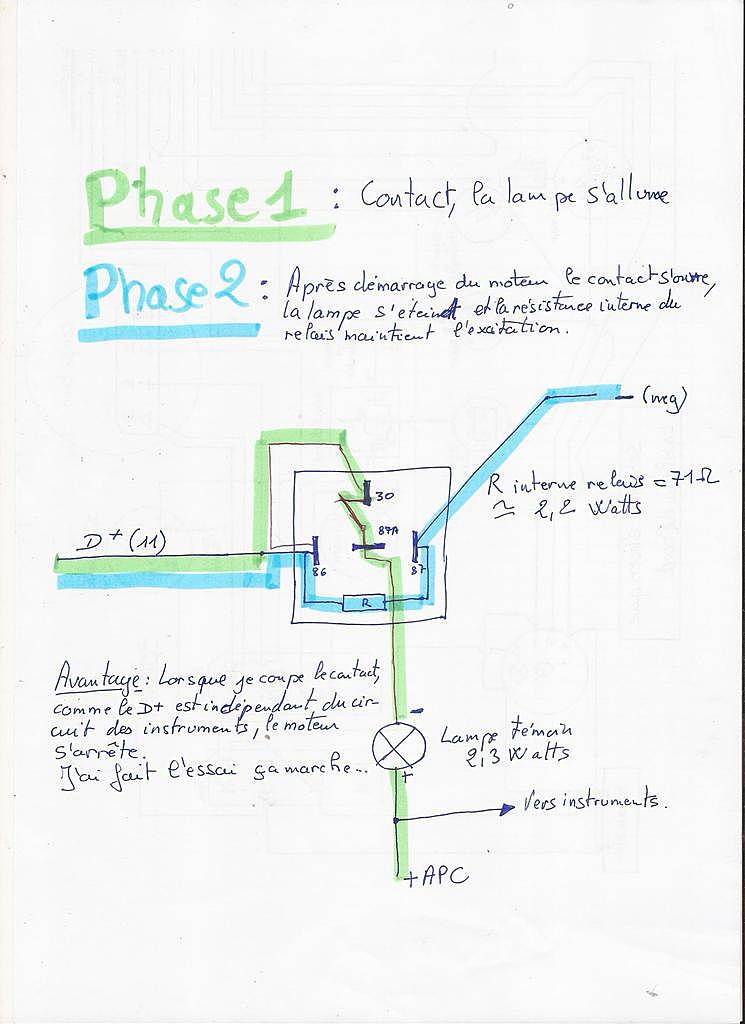 Phase 1 : Contact, la lampe s'allume
Phase 2 : Après démarrage du moteur le contact s'ouvre,
la lampe s'éteint et la résistance interne du
relais maintient l'excitation.
- (neg)
R interne relais = 71Ω
≃ 2,2 Watts
30
87A
D+ (11)
86
87
R
Avantage : Lorsque je coupe le contact,
comme le D+ est indépendant du cir-
cuit des instruments, le moteur
s'arrête.
J'ai fait l'essai ça marche...
-
Lampe témoin
2,3 Watts
+
Vers instruments.
+ APC